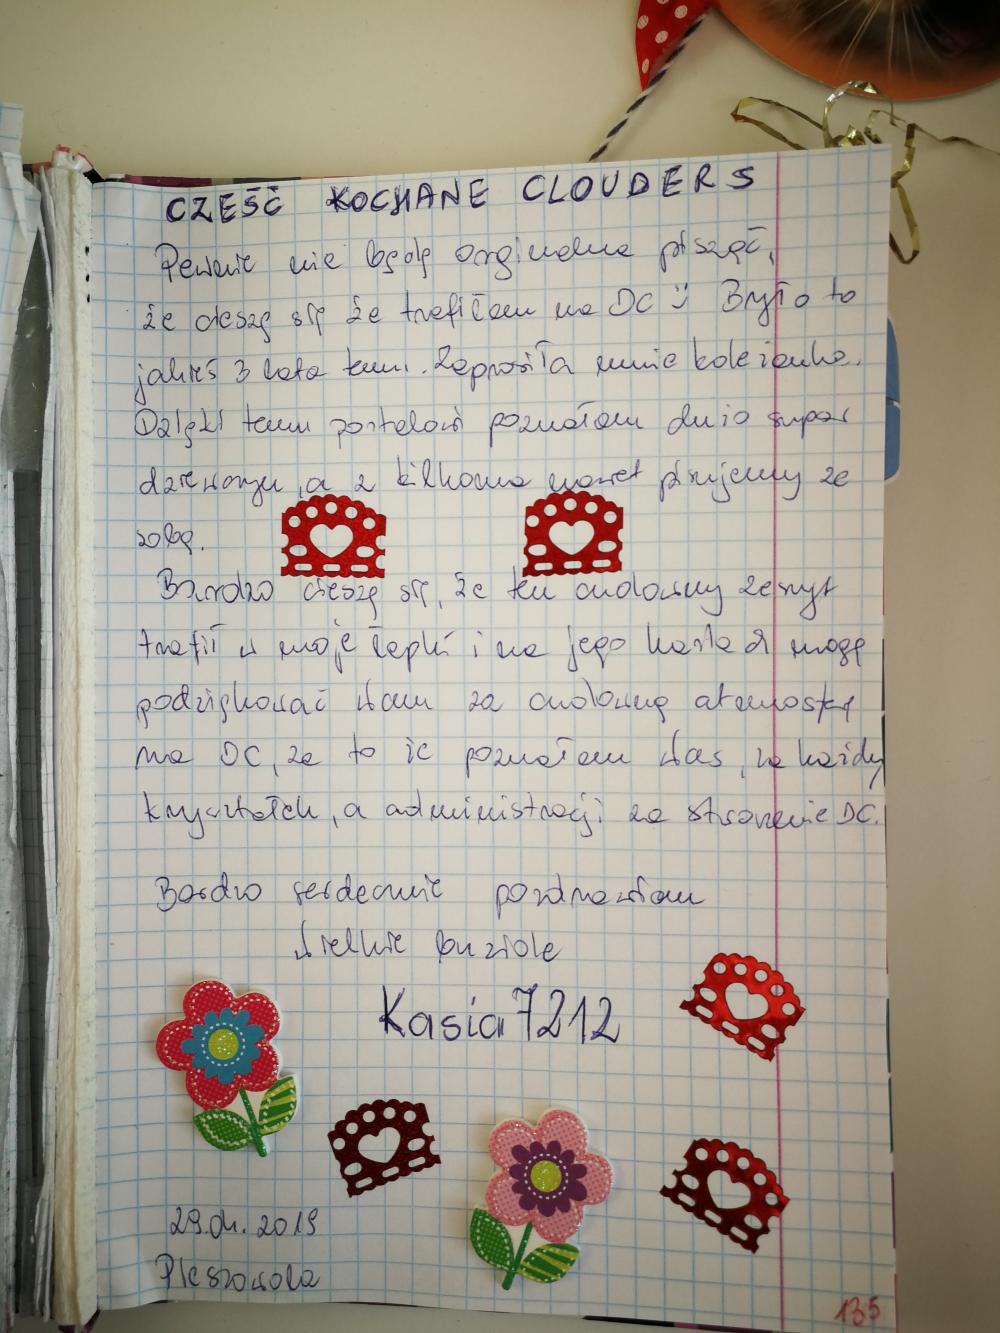 CZEŚĆ KOCHANE CLOUDERS
Pewnie nie będę orginalna pisząc,
że cieszę się że trafiłam na DC Było to
jakieś 3 lata temu. Zaprosiła mnie koleżanka.
Dzięki temu portalowi poznałam dużo super
dziewczyn, a z kilkoma nawet piszemy ze
sobą.
Bardzo cieszę się, że ten cudowny zeszyt
trafił w moje łapki i na jego kartach mogę
podziękować Wam za cudowną atmosferę
na DC, za to że poznałam Was, za każdy
kryształek, a administracji za stworzenie DC.
Bardzo serdecznie pozdrawiam
Wielkie buziole
Kasia7212
29.04.2019
Pleszowola
135